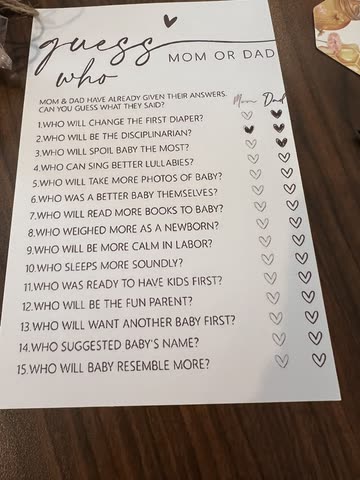 guess
who
MOM OR DAD
MOM & DAD HAVE ALREADY GIVEN THEIR ANSWERS.
CAN YOU GUESS WHAT THEY SAID?
Mom Dad
1.WHO WILL CHANGE THE FIRST DIAPER?
2.WHO WILL BE THE DISCIPLINARIAN?
3.WHO WILL SPOIL BABY THE MOST?
4.WHO CAN SING BETTER LULLABIES?
5.WHO WILL TAKE MORE PHOTOS OF BABY?
6.WHO WAS A BETTER BABY THEMSELVES?
7.WHO WILL READ MORE BOOKS TO BABY?
8.WHO WEIGHED MORE AS A NEWBORN?
9.WHO WILL BE MORE CALM IN LABOR?
10.WHO SLEEPS MORE SOUNDLY?
11.WHO WAS READY TO HAVE KIDS FIRST?
12.WHO WILL BE THE FUN PARENT?
13.WHO WILL WANT ANOTHER BABY FIRST?
14.WHO SUGGESTED BABY'S NAME?
15.WHO WILL BABY RESEMBLE MORE?